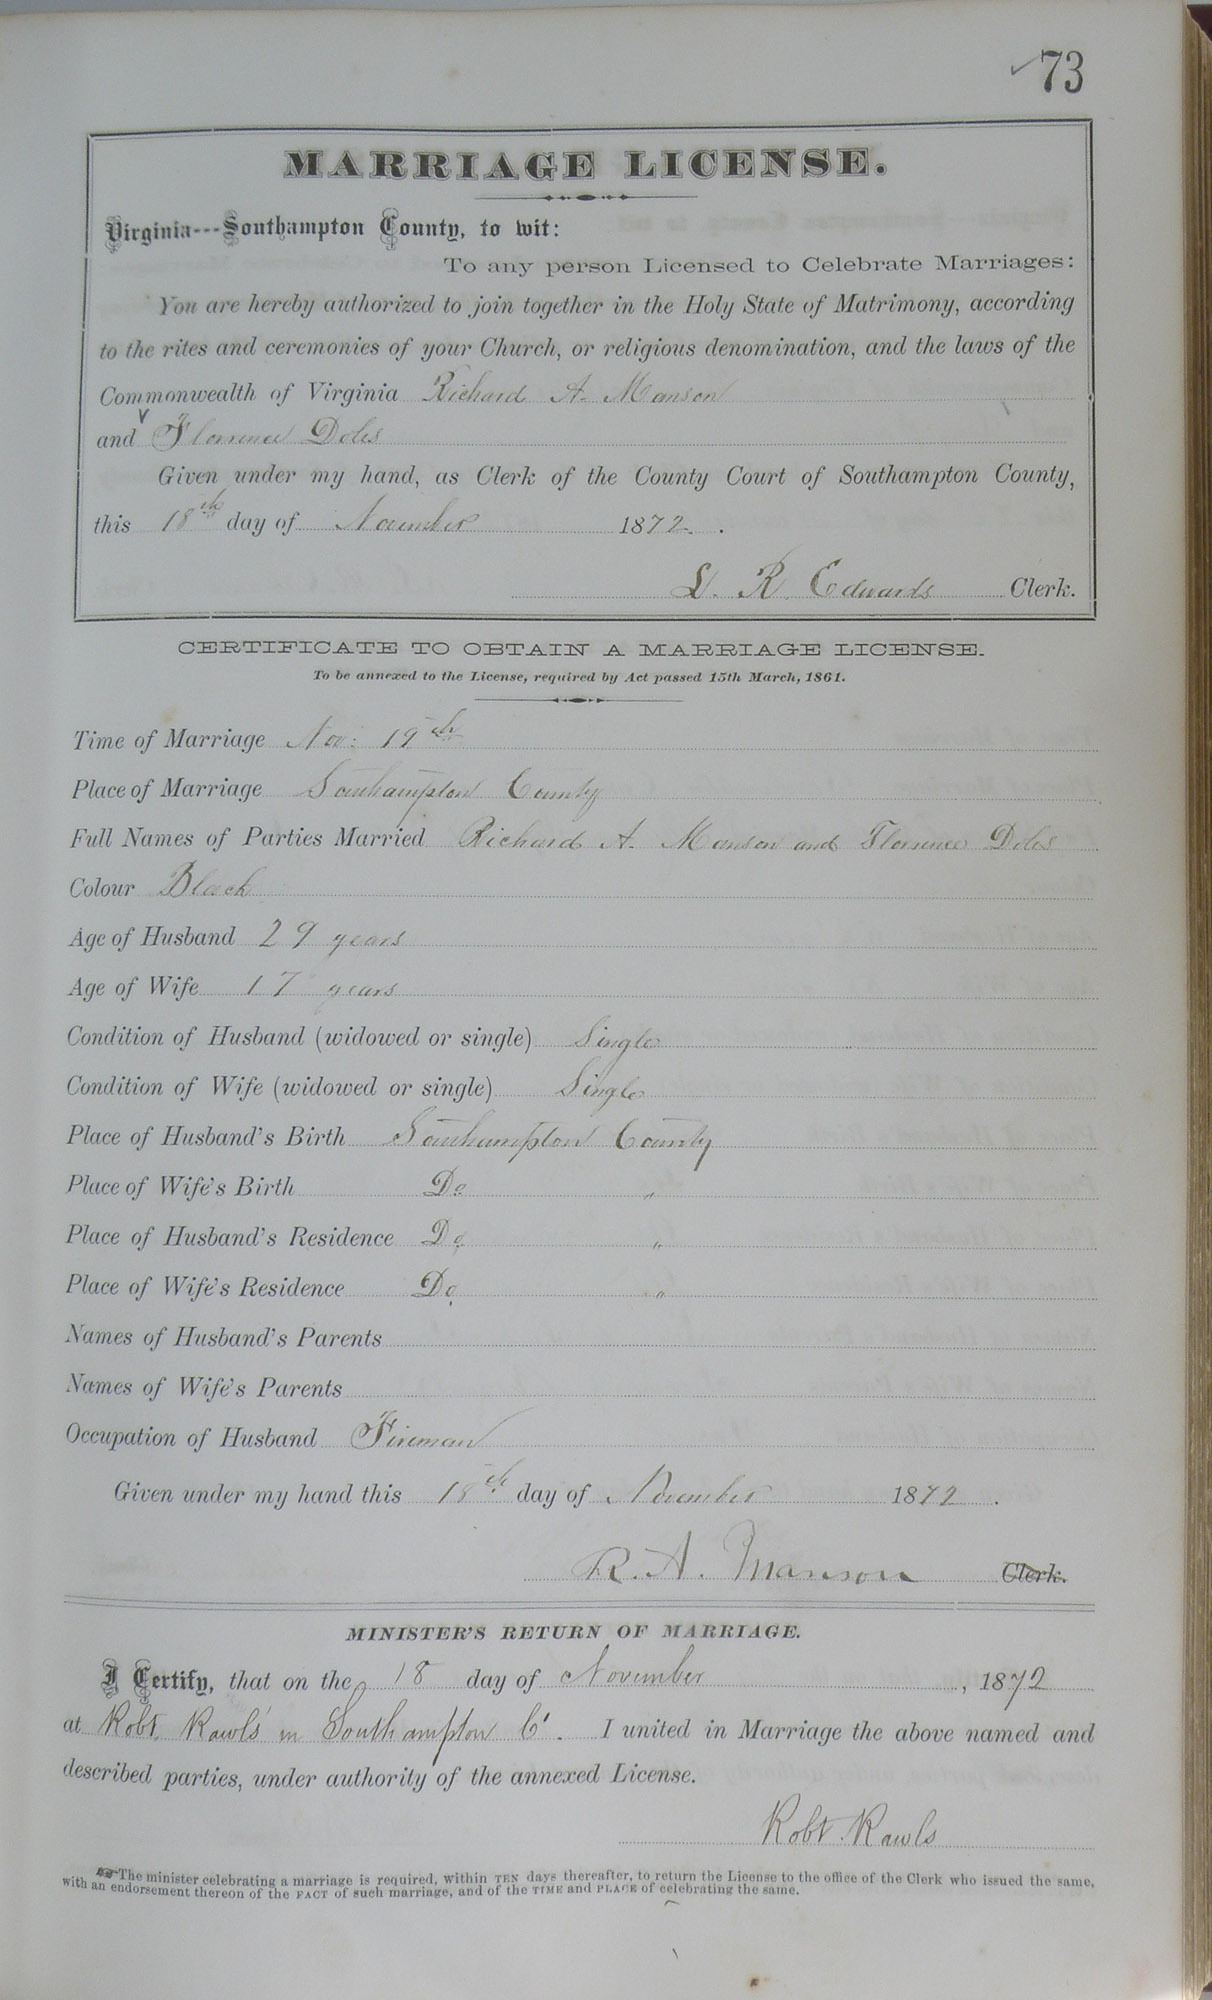 73
MARRIAGE LICENSE.
Virginia---Southampton County, to wit:
To any person Licensed to Celebrate Marriages:
You are hereby authorized to join together in the Holy State of Matrimony, according
to the rites and ceremonies of your Church, or religious denomination, and the laws of the
Commonwealth of Virginia Richard A. Manson
and Florence Doles
Given under my hand, as Clerk of the County Court of Southampton County,
this 18th day of November 1872.
L. R. Edwards Clerk.
CERTIFICATE TO OBTAIN A MARRIAGE LICENSE.
To be annexed to the License, required by Act passed 15th March, 1861.
Time of Marriage Nov: 19th
Place of Marriage Southampton County
Full Names of Parties Married Richard A. Manson and Florence Doles
Colour Black
Age of Husband 29 years
Age of Wife 17 years
Condition of Husband (widowed or single) Single
Condition of Wife (widowed or single) Single
Place of Husband's Birth Southampton County
Place of Wife's Birth Do "
Place of Husband's Residence Do "
Place of Wife's Residence Do "
Names of Husband's Parents
Names of Wife's Parents
Occupation of Husband Fireman
Given under my hand this 18th day of November 1872.
R. A. Manson Clerk.
MINISTER'S RETURN OF MARRIAGE.
I Certify, that on the 18 day of November, 1872
at Robt. Rawls' in Southampton Co. I united in Marriage the above named and
described parties, under authority of the annexed License.
Robt. Rawls
The minister celebrating a marriage is required, within TEN days thereafter, to return the License to the office of the Clerk who issued the same,
with an endorsement thereon of the FACT of such marriage, and of the TIME and PLACE of celebrating the same.